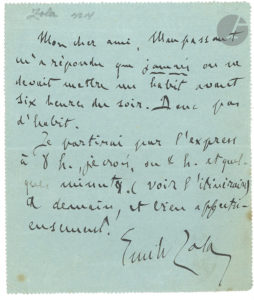 Zola
Mon cher ami, Maupassant
m'a répondu que jamais on ne
devait mettre un habit avant
six heures du soir. Donc pas
d'habit.
Je partirai par l'express
à 8 h., je crois, ou 8 h. et quel-
ques minutes (voir l'itinéraire)
A demain, et bien affectu-
eusement.
Emile Zola